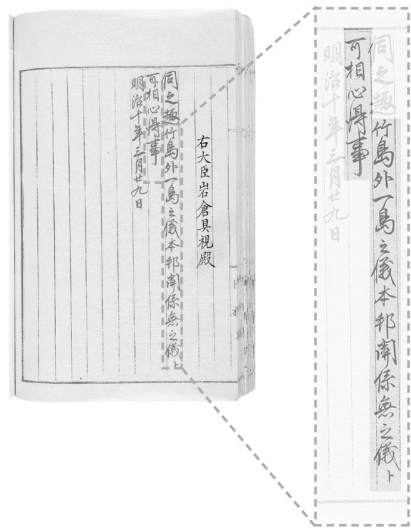 右大臣岩倉具視殿
伺之趣竹島外一島之儀本邦関係無之儀ト
可相心得事
明治十年三月廿九日
伺之趣竹島外一島之儀本邦関係無之儀ト
可相心得事
明治十年三月廿九日